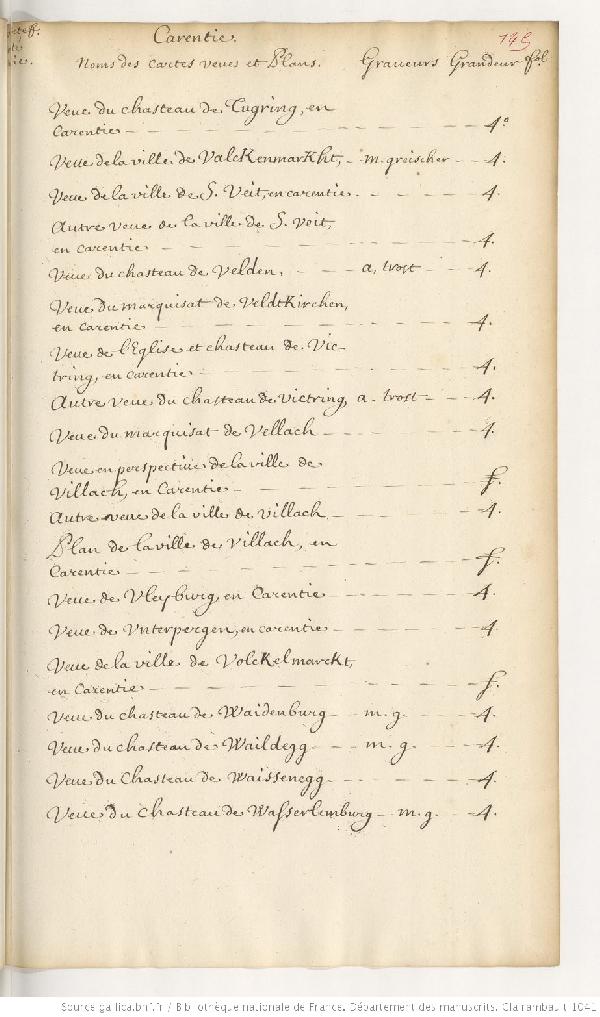 Carentie.
175
Noms des cartes veues et Plans. Graveurs Grandeur fol
Veue du chasteau de Tugring, en
Carentie 4°
Veue de la ville de Valckenmarkht, m. greischer 4.
Veue de la ville de S. Veit, en carentie 4.
Autre veue de la ville de S. Veit,
en carentie 4.
Veue du chasteau de Velden, a. trost 4.
Veue du marquisat de Veldtkirchen,
en carentie 4.
Veue de l'Eglise et chasteau de Vic-
tring, en carentie 4.
Autre veue du chasteau de victring, a. trost 4.
Veue du marquisat de Vellach 4.
Veue en perspective de la ville de
Villach, en Carentie f.
Autre veue de la ville de villach 4.
Plan de la ville de Villach, en
Carentie f.
Veue de Vleyburg en Carentie 4.
Veue de Vnterpergen, en carentie 4
Veue de la ville de Volckelmarckt,
en Carentie f.
Veue du chasteau de Waidenburg m. g. 4.
Veue du chasteau de Waildegg m. g. 4.
Veue du Chasteau de Waissenegg 4.
Veue du Chasteau de Wasserlemburg m. g. 4.
Source gallica.bnf.fr / Bibliothèque nationale de France. Département des manuscrits. Clairambault 1041